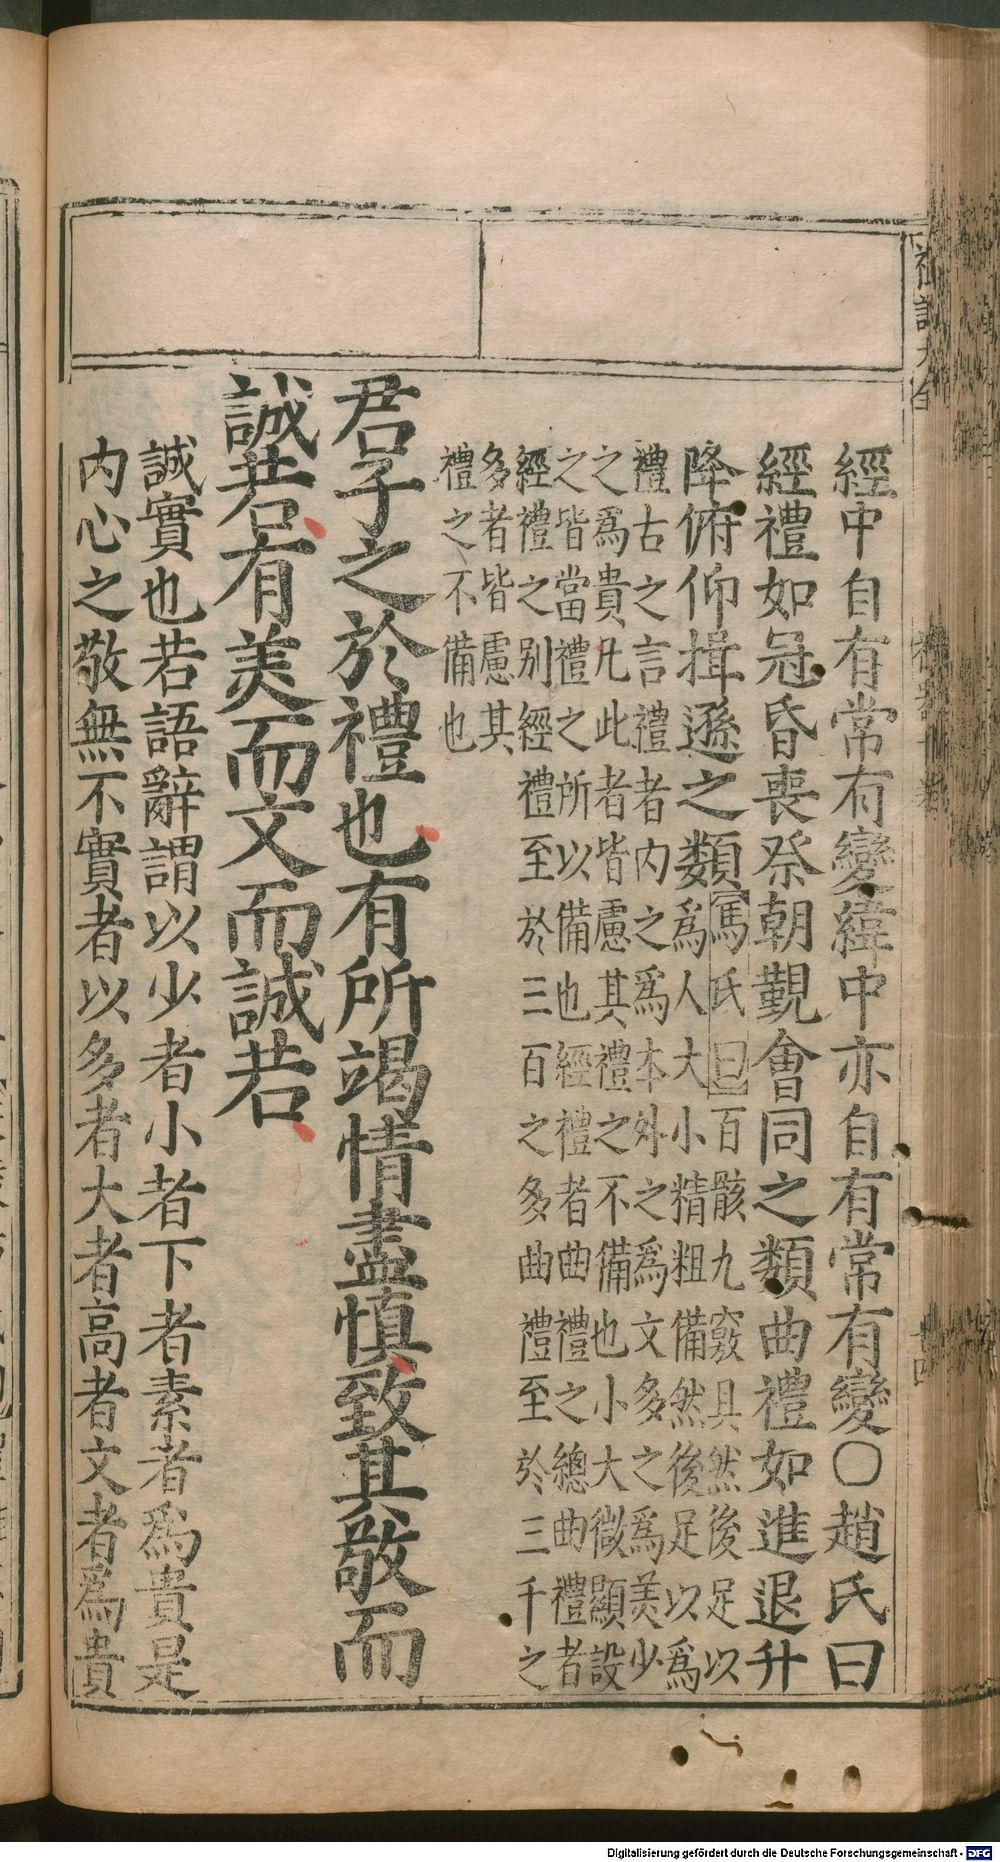 禮記大全
廿四
經中自有常有變緯中亦自有常有變○趙氏曰
經禮如冠昏喪祭朝覲會同之類曲禮如進退升
降俯仰揖遜之類
馬氏曰百骸九竅具然後足以
爲人大小精粗備然後足以爲
禮古之言禮者内之爲本外之爲文多之爲美少
之爲貴凡此者皆慮其禮之不備也小大微顯設
之皆當禮之所以備也經禮者曲禮之總曲禮者
經禮之別經禮至於三百之多曲禮至於三千之
多者皆慮其
禮之不備也
君子之於禮也有所竭情盡慎致其敬而
誠若有美而文而誠若
誠實也若語辭謂以少者小者下者素者爲貴是
内心之敬無不實者以多者大者高者文者爲貴
Digitalisierung gefördert durch die Deutsche Forschungsgemeinschaft - DFG